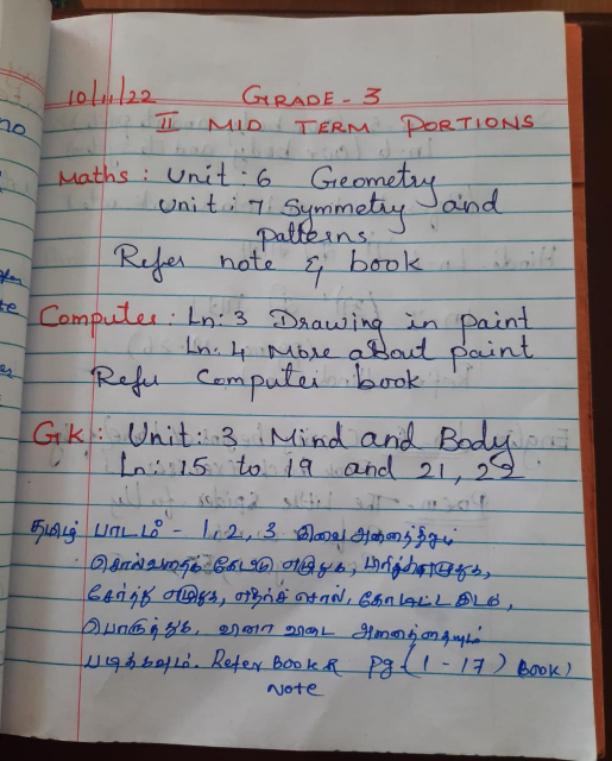 10/11/22 GRADE - 3
II MID TERM PORTIONS
Maths : Unit : 6 Geometry
Unit : 7 Symmetry and
patterns
Refer note & book
Computer : Ln : 3 Drawing in paint
Ln : 4 More about paint
Refer Computer book
GK : Unit : 3 Mind and Body
Ln : 15 to 19 and 21, 22
தமிழ் பாடம் - 1, 2, 3 இவை அனைத்தும்
சொல்வதைக் கேட்டு எழுதுக, பிரித்து எழுதுக,
சேர்த்து எழுதுக, எதிர்ச் சொல், கோடிட்ட இடம்,
பொருத்துக, வினா விடை அனைத்தையும்
படிக்கவும். Refer Book & Pg (1 - 17) Book)
note